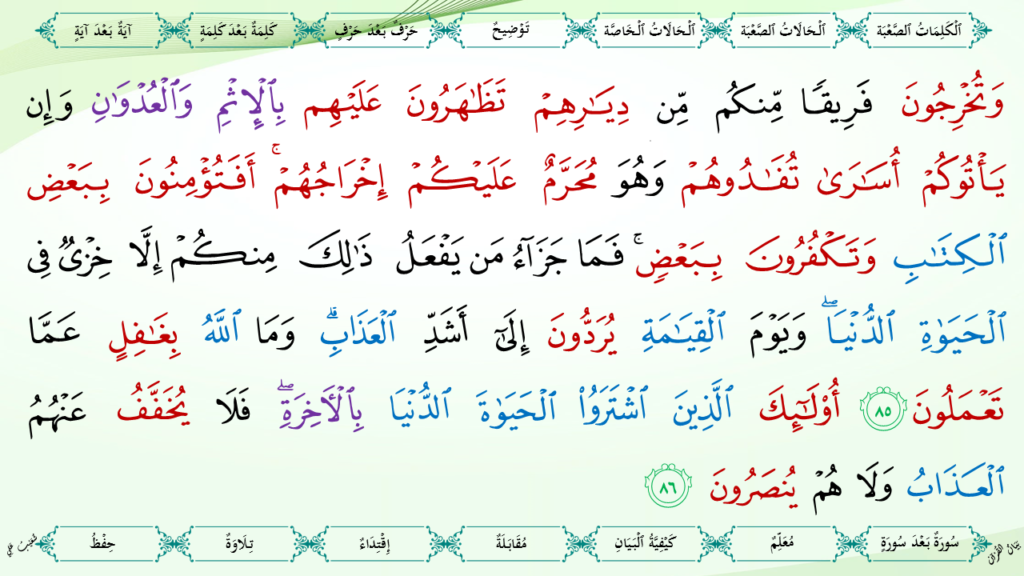 اَلْكَلِمَاتُ الصَّعْبَة اَلْحَالَاتُ الصَّعْبَة اَلْحَالَاتُ الْخَاصَّة تَوْضِيحٌ حَرْفٌ بَعْدَ حَرْفٍ كَلِمَةٌ بَعْدَ كَلِمَةٍ آيَةٌ بَعْدَ آيَةٍ
وَتُخۡرِجُونَ فَرِيقٗا مِّنكُم مِّن دِيَٰرِهِمۡ تَظَٰهَرُونَ عَلَيۡهِم بِٱلۡإِثۡمِ وَٱلۡعُدۡوَٰنِ وَإِن
يَأۡتُوكُمۡ أُسَٰرَىٰ تُفَٰدُوهُمۡ وَهُوَ مُحَرَّمٌ عَلَيۡكُمۡ إِخۡرَاجُهُمۡۚ أَفَتُؤۡمِنُونَ بِبَعۡضِ
ٱلۡكِتَٰبِ وَتَكۡفُرُونَ بِبَعۡضٖۚ فَمَا جَزَآءُ مَن يَفۡعَلُ ذَٰلِكَ مِنكُمۡ إِلَّا خِزۡيٞ فِي
ٱلۡحَيَوٰةِ ٱلدُّنۡيَاۖ وَيَوۡمَ ٱلۡقِيَٰمَةِ يُرَدُّونَ إِلَىٰٓ أَشَدِّ ٱلۡعَذَابِۗ وَمَا ٱللَّهُ بِغَٰفِلٍ عَمَّا
تَعۡمَلُونَ ٨٥ أُوْلَٰٓئِكَ ٱلَّذِينَ ٱشۡتَرَوُاْ ٱلۡحَيَوٰةَ ٱلدُّنۡيَا بِٱلۡأٓخِرَةِۖ فَلَا يُخَفَّفُ عَنۡهُمُ
ٱلۡعَذَابُ وَلَا هُمۡ يُنصَرُونَ ٨٦
سُورَةٌ بَعْدَ سُورَةٍ مُعَلِّمٌ كَيْفِيَّةُ الْبَيَانِ مُقَابَلَةٌ إِقْتِدَاءٌ تِلَاوَةٌ حِفْظٌ